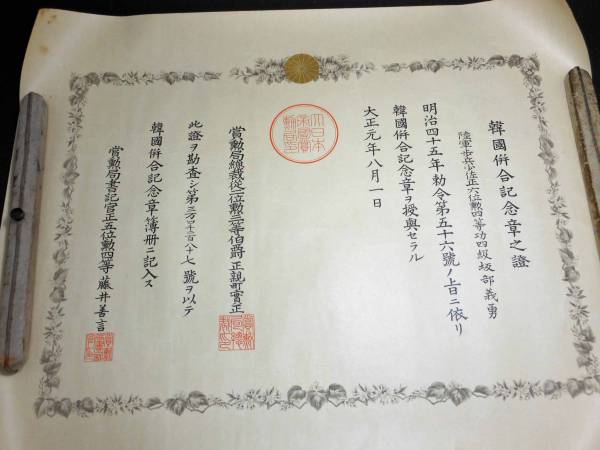 韓國併合記念章之證
陸軍歩兵少佐正六位勲四等功四級坂部義勇
明治四十五年勅令第五十六號ノ上旨ニ依リ
韓國併合記念章ヲ授與セラル
大正元年八月一日
大日本帝國賞勲局印
賞勲局總裁從二位勲二等伯爵正親町實正
此證ヲ勘査シ第三万四千二百八十七號ヲ以テ
韓國併合記念章簿册ニ記入ス
賞勲局書記官正五位勲四等藤井善言